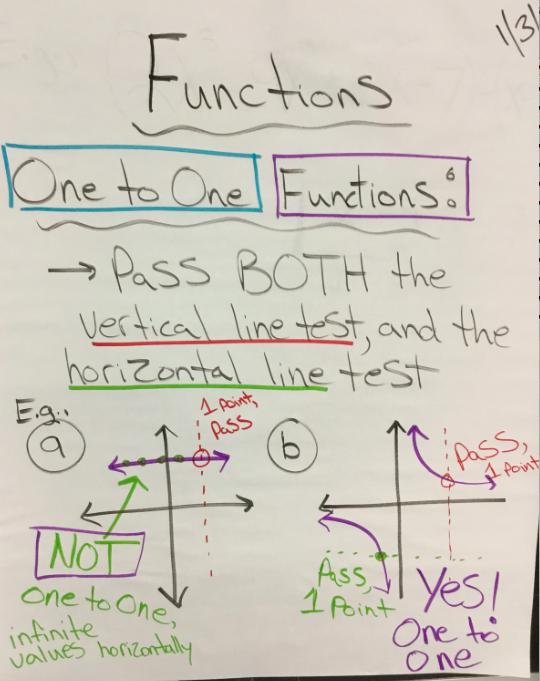 1/3/
Functions
One to One Functions:
→ Pass BOTH the
vertical line test, and the
horizontal line test
E.g.,
a
1 Point,
Pass
NOT
One to One,
infinite
values horizontally
b
Pass,
1 Point
Pass,
1 Point
Yes!
One to
One